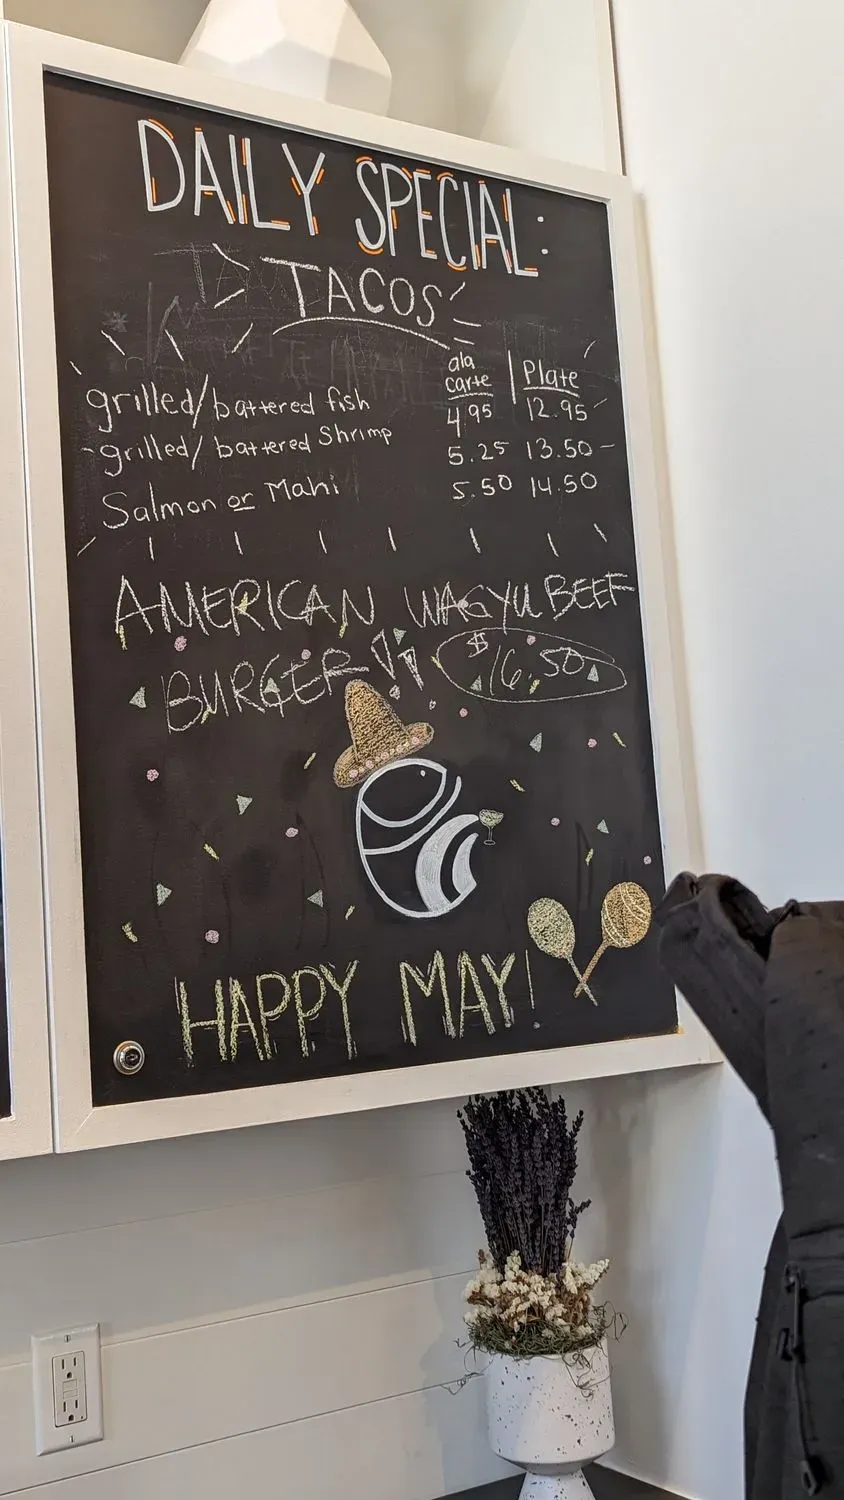 DAILY SPECIAL:
TACOS
ala carte | Plate
grilled/battered fish 4.95 12.95
grilled/battered Shrimp 5.25 13.50
Salmon or Mahi 5.50 14.50
AMERICAN WAGYU BEEF
BURGER!! $16.50
HAPPY MAY!